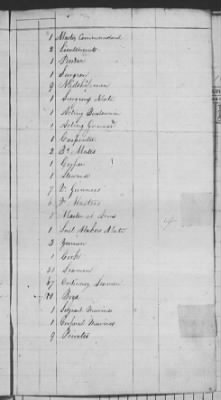 1 Master Commandant
2 Lieutenants
1 Purser
1 Surgeon
9 Midshipmen
1 Surgeons Mate
1 Acting Boatswain
1 Acting Gunner
1 Carpenter
2 Bs Mates
1 Cooper
1 Steward
7 Qr Gunners
Qr Masters
1 Master at Arms
1 Sail Makers Mate
2 Yeomen
1 Cook
Seamen
67 Ordinary Seamen
Boys
1 Sergeant Marines
1 Corporal Marines
9 Privates